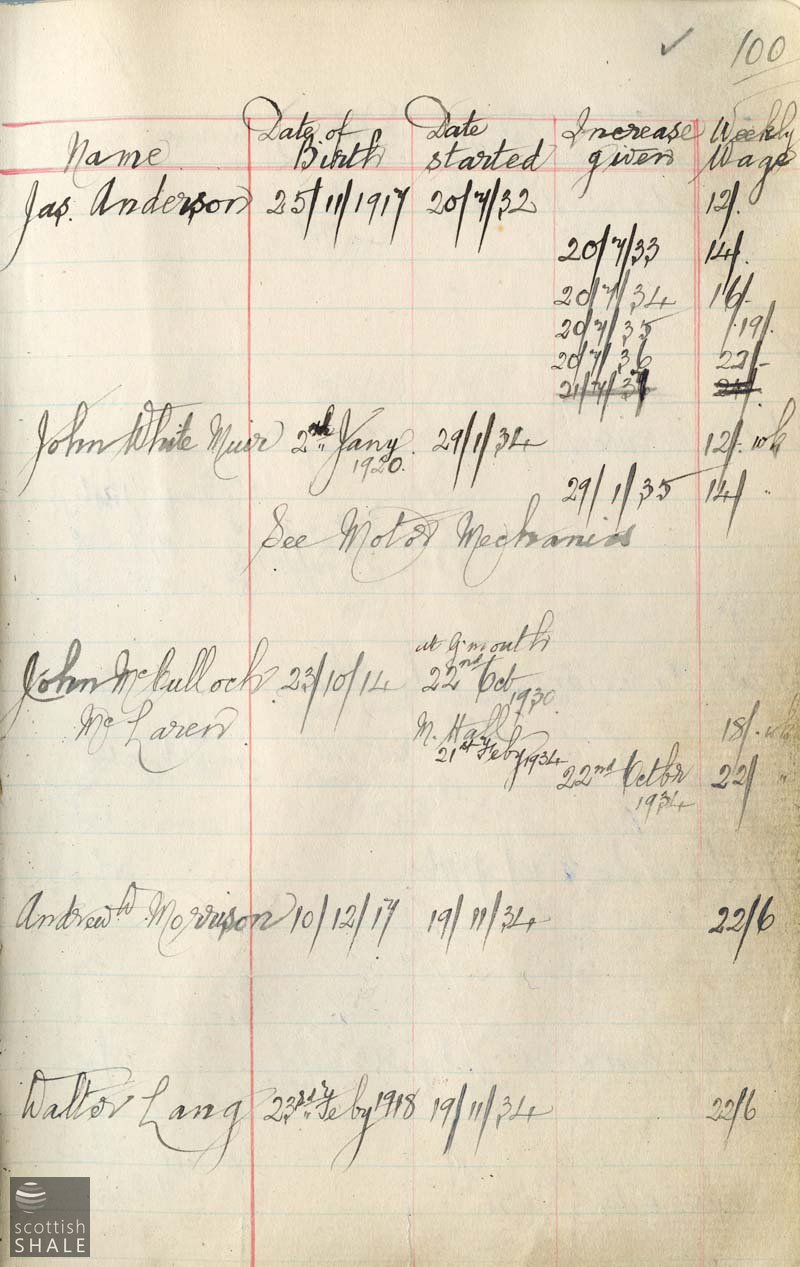 ✓ 100
Name Date of Birth Date started Increase given Weekly Wage
Jas. Anderson 25/11/1917 20/7/32 12/.
20/7/33 14/.
20/7/34 16/-
20/7/35 19/.
20/7/36 22/-
21/7/37
John White Muir 2nd Jany 1920. 29/1/34 12/. wk
29/1/35 14/ "
See Motor Mechanics
at G'mouth
John McCulloch 23/10/14 22nd Oct 1930.
McLaren M. Hall 18/. wk
21st Feby 1934 22nd Octbr 1934 22/ "
Andrew W Morrison 10/12/17 19/11/34 22/6
Walter Lang 23rd Feby 1918 19/11/34 22/6
scottish
SHALE